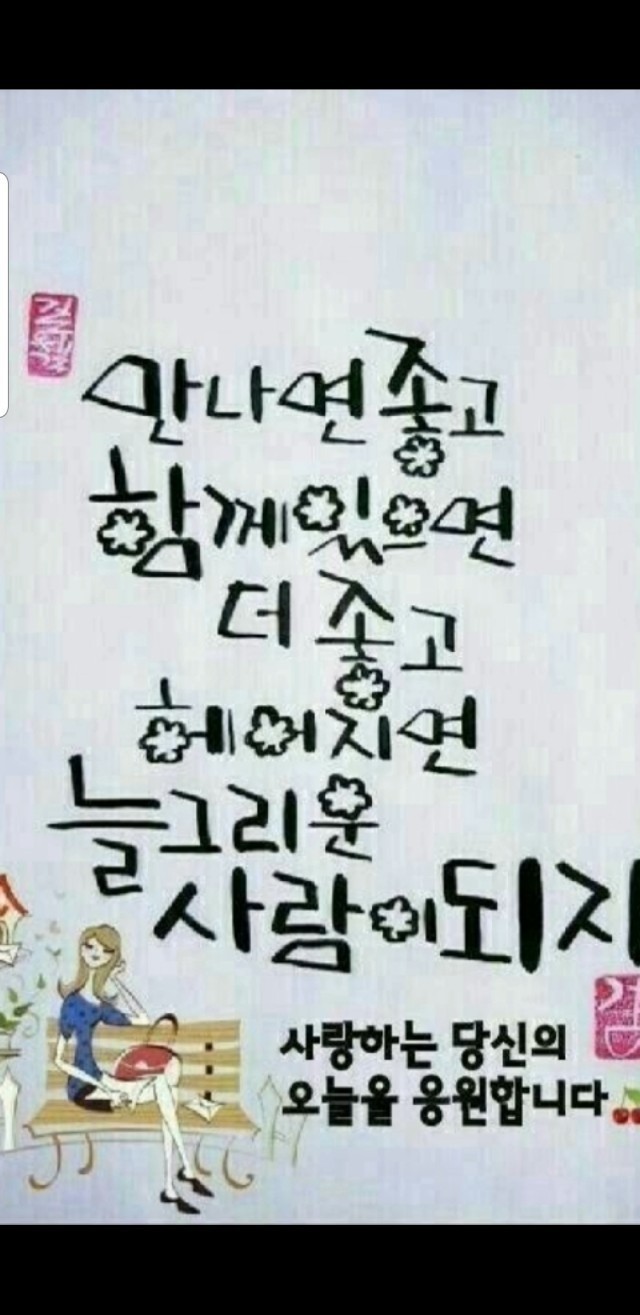 만나면좋고
함께있으면
더 좋고
헤어지면
늘그리운
사람이되자
사랑하는 당신의
오늘을 응원합니다